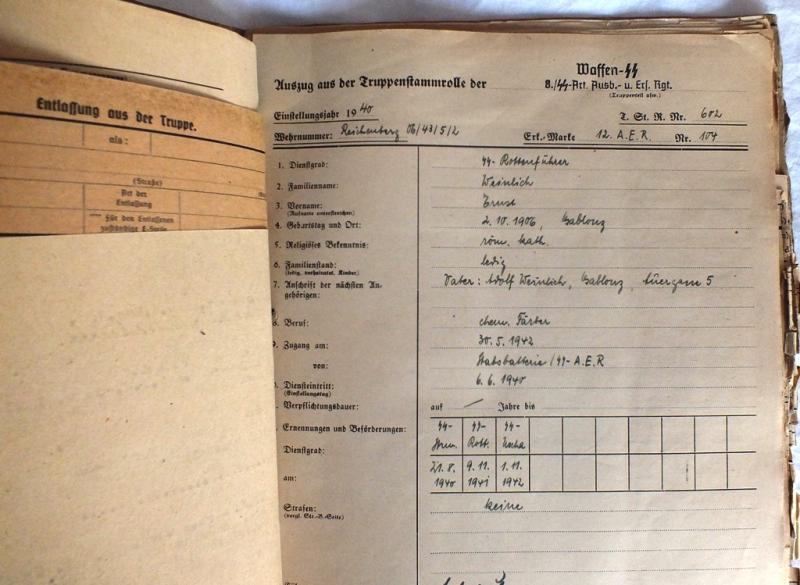 Entlassung aus der Truppe.
als:
(Straße)
Art der
Entlassung
für den Entlassenen
zuständige
Waffen-SS
Auszug aus der Truppenstammrolle der 8./SS-Art. Ausb.- u. Ers. Rgt.
(Truppenteil usw.)
Einstellungsjahr 1940
T. St. R. Nr. 602
Wehrnummer: Reichenberg 06/43/5/2
Erk.-Marke 12. A.E.R. Nr. 104
1. Dienstgrad: SS-Rottenführer
2. Familienname: Weinlich
3. Vorname: Ernst
(Rufname unterstreichen)
4. Geburtstag und Ort: 2. 10. 1906, Gablonz
5. Religiöses Bekenntnis: röm. kath.
6. Familienstand: ledig
(ledig, verheiratet, Kinder)
7. Anschrift der nächsten An-
gehörigen: Vater: Adolf Weinlich, Gablonz, 5
8. Beruf: chem. Färber
9. Zugang am: 30. 5. 1942
von: Stabsbatterie/SS-A.E.R
Diensteintritt: 6. 6. 1940
(Einstellungstag)
Verpflichtungsdauer: auf — Jahre bis
Ernennungen und Beförderungen:
Dienstgrad: SS-Strm. SS-Rott. SS-Uscha
am: 21. 8. 1940 9. 11. 1941 1. 11. 1942
Strafen: keine
(vergl. Str.-B.-Seite)